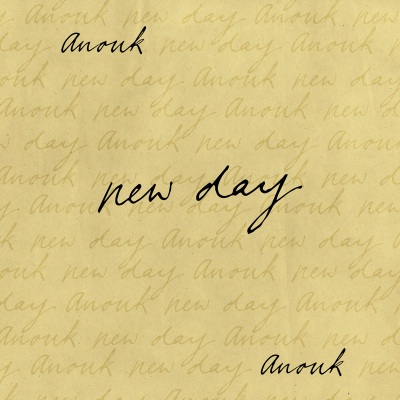 Anouk
new day
Anouk